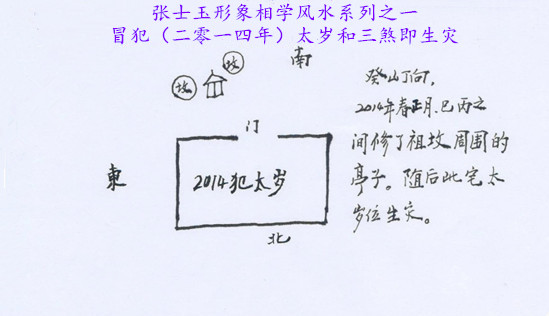 张士玉形象相学风水系列之一
冒犯（二零一四年）太岁和三煞即生灾
南
坟
坟
癸山丁向，
2014年春正月.巳丙之
间修了祖坟周围的
亭子。随后此宅太
岁位生灾。
门
東
2014犯太岁
北